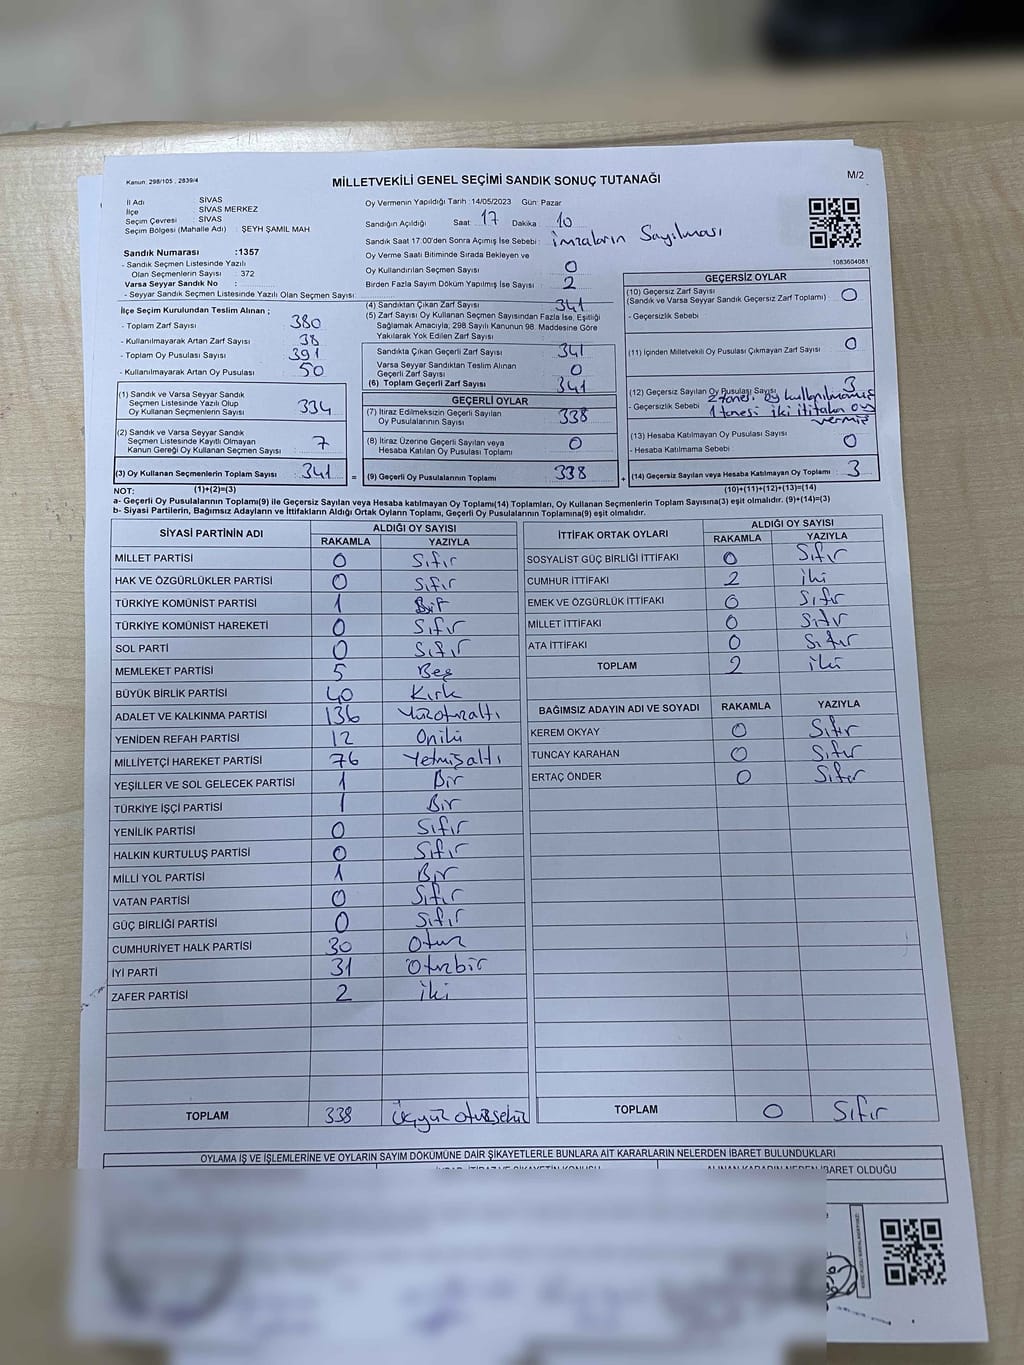 Kanun: 298/105 , 2839/4
MİLLETVEKİLİ GENEL SEÇİMİ SANDIK SONUÇ TUTANAĞI
M/2
İl Adı : SİVAS
İlçe : SİVAS MERKEZ
Seçim Çevresi : SİVAS
Seçim Bölgesi (Mahalle Adı) : ŞEYH ŞAMİL MAH
Sandık Numarası :1357
- Sandık Seçmen Listesinde Yazılı
Olan Seçmenlerin Sayısı : 372
Varsa Seyyar Sandık No :
- Seyyar Sandık Seçmen Listesinde Yazılı Olan Seçmen Sayısı:
Oy Vermenin Yapıldığı Tarih :14/05/2023 Gün: Pazar
Sandığın Açıldığı Saat: 17 Dakika : 10
Sandık Saat 17.00'den Sonra Açılmış İse Sebebi : İmzaların Sayılması
Oy Verme Saati Bitiminde Sırada Bekleyen ve
Oy Kullandırılan Seçmen Sayısı : 0
Birden Fazla Sayım Döküm Yapılmış İse Sayısı : 2
1083604081
İlçe Seçim Kurulundan Teslim Alınan ;
- Toplam Zarf Sayısı : 380
- Kullanılmayarak Artan Zarf Sayısı : 38
- Toplam Oy Pusulası Sayısı : 391
- Kullanılmayarak Artan Oy Pusulası : 50
(1) Sandık ve Varsa Seyyar Sandık
Seçmen Listesinde Yazılı Olup
Oy Kullanan Seçmenlerin Sayısı : 334
(2) Sandık ve Varsa Seyyar Sandık
Seçmen Listesinde Kayıtlı Olmayan
Kanun Gereği Oy Kullanan Seçmen Sayısı : 7
(3) Oy Kullanan Seçmenlerin Toplam Sayısı : 341
(1)+(2)=(3)
(4) Sandıktan Çıkan Zarf Sayısı : 341
(5) Zarf Sayısı Oy Kullanan Seçmen Sayısından Fazla İse, Eşitliği
Sağlamak Amacıyla, 298 Sayılı Kanunun 98. Maddesine Göre
Yakılarak Yok Edilen Zarf Sayısı :
Sandıkta Çıkan Geçerli Zarf Sayısı : 341
Varsa Seyyar Sandıktan Teslim Alınan
Geçerli Zarf Sayısı : 0
(6) Toplam Geçerli Zarf Sayısı : 341
GEÇERLİ OYLAR
(7) İtiraz Edilmeksizin Geçerli Sayılan
Oy Pusulalarının Sayısı : 338
(8) İtiraz Üzerine Geçerli Sayılan veya
Hesaba Katılan Oy Pusulası Toplamı : 0
= (9) Geçerli Oy Pusulalarının Toplamı : 338
GEÇERSİZ OYLAR
(10) Geçersiz Zarf Sayısı : 0
(Sandık ve Varsa Seyyar Sandık Geçersiz Zarf Toplamı)
- Geçersizlik Sebebi :
(11) İçinden Milletvekili Oy Pusulası Çıkmayan Zarf Sayısı : 0
(12) Geçersiz Sayılan Oy Pusulası Sayısı : 3
- Geçersizlik Sebebi : 2 tanesi oy kullanılmamış
1 tanesi iki ittifaka oy
vermiş
(13) Hesaba Katılmayan Oy Pusulası Sayısı : 0
- Hesaba Katılmama Sebebi :
+ (14) Geçersiz Sayılan veya Hesaba Katılmayan Oy Toplamı : 3
(10)+(11)+(12)+(13)=(14)
NOT:
a- Geçerli Oy Pusulalarının Toplamı(9) ile Geçersiz Sayılan veya Hesaba katılmayan Oy Toplamı(14) Toplamları, Oy Kullanan Seçmenlerin Toplam Sayısına(3) eşit olmalıdır. (9)+(14)=(3)
b- Siyasi Partilerin, Bağımsız Adayların ve İttifakların Aldığı Ortak Oyların Toplamı, Geçerli Oy Pusulalarının Toplamına(9) eşit olmalıdır.
SİYASİ PARTİNİN ADI ALDIĞI OY SAYISI
RAKAMLA YAZIYLA
MİLLET PARTİSİ 0 Sıfır
HAK VE ÖZGÜRLÜKLER PARTİSİ 0 Sıfır
TÜRKİYE KOMÜNİST PARTİSİ 1 Bir
TÜRKİYE KOMÜNİST HAREKETİ 0 Sıfır
SOL PARTİ 0 Sıfır
MEMLEKET PARTİSİ 5 Beş
BÜYÜK BİRLİK PARTİSİ 40 Kırk
ADALET VE KALKINMA PARTİSİ 136 Yüzotuzaltı
YENİDEN REFAH PARTİSİ 12 Oniki
MİLLİYETÇİ HAREKET PARTİSİ 76 Yetmişaltı
YEŞİLLER VE SOL GELECEK PARTİSİ 1 Bir
TÜRKİYE İŞÇİ PARTİSİ 1 Bir
YENİLİK PARTİSİ 0 Sıfır
HALKIN KURTULUŞ PARTİSİ 0 Sıfır
MİLLİ YOL PARTİSİ 1 Bir
VATAN PARTİSİ 0 Sıfır
GÜÇ BİRLİĞİ PARTİSİ 0 Sıfır
CUMHURİYET HALK PARTİSİ 30 Otuz
İYİ PARTİ 31 Otuzbir
ZAFER PARTİSİ 2 İki
TOPLAM 338 Üçyüz otuzsekiz
İTTİFAK ORTAK OYLARI ALDIĞI OY SAYISI
RAKAMLA YAZIYLA
SOSYALİST GÜÇ BİRLİĞİ İTTİFAKI 0 Sıfır
CUMHUR İTTİFAKI 2 İki
EMEK VE ÖZGÜRLÜK İTTİFAKI 0 Sıfır
MİLLET İTTİFAKI 0 Sıfır
ATA İTTİFAKI 0 Sıfır
TOPLAM 2 İki
BAĞIMSIZ ADAYIN ADI VE SOYADI RAKAMLA YAZIYLA
KEREM OKYAY 0 Sıfır
TUNCAY KARAHAN 0 Sıfır
ERTAÇ ÖNDER 0 Sıfır
TOPLAM 0 Sıfır
OYLAMA İŞ VE İŞLEMLERİNE VE OYLARIN SAYIM DÖKÜMÜNE DAİR ŞİKAYETLERLE BUNLARA AİT KARARLARIN NELERDEN İBARET BULUNDUKLARI
ALINAN KARARIN NEDEN İBARET OLDUĞU